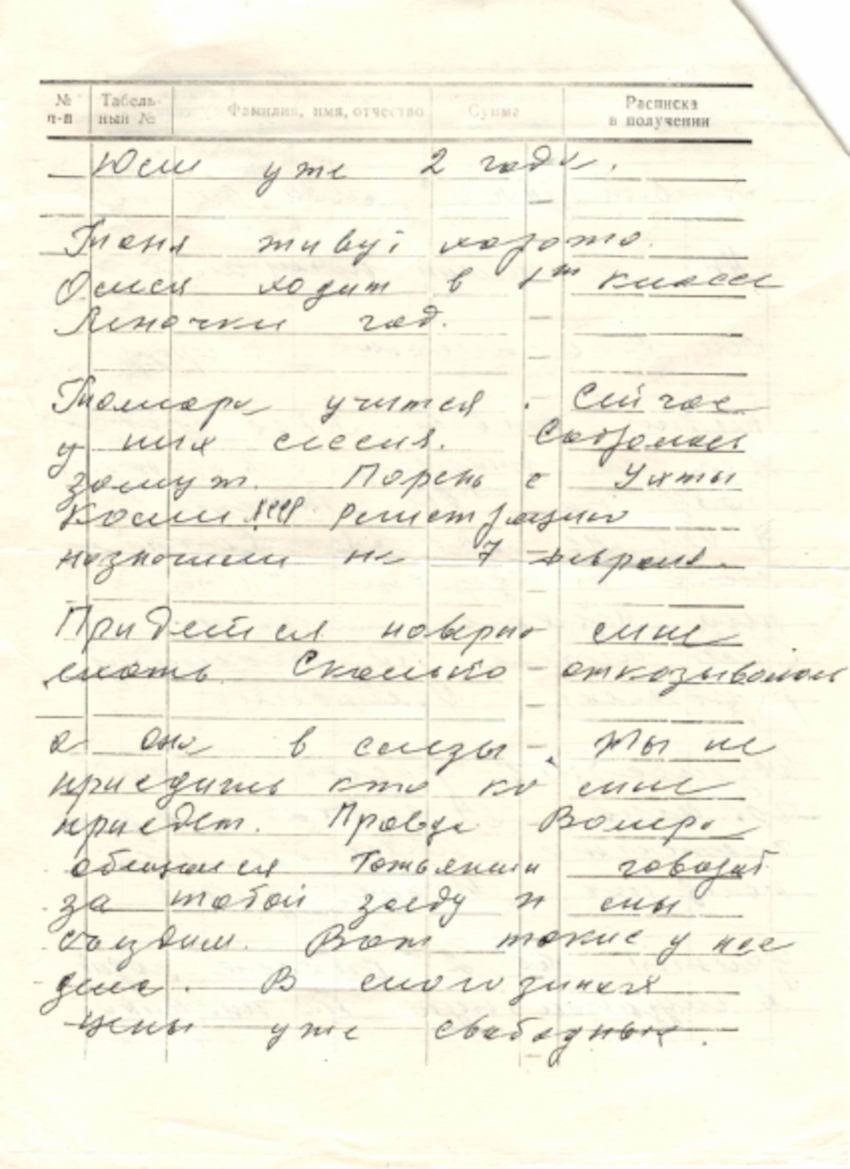 № п-п Табель-ный № Фамилия, имя, отчество Сумма Расписка в получении
Юли уже 2 года.
Таня живут хорошо.
Олеся ходит в 1ый класс
Леночки год.
Тамара учится. Сейчас
у них сессия. Собралась
замуж. Парень с Ухты
Коми регистрацию
назначили на 7 февраля.
Придется наверно мне
ехать. Сколько отказывалась
а она в слезы. Ты не
приедишь кто ко мне
приедет. Правда Валера
обещался Татьянин говорит
за тобой заеду и мы
съездим. Вот такие у нее
дела. В магазинах
цены уже свободные.